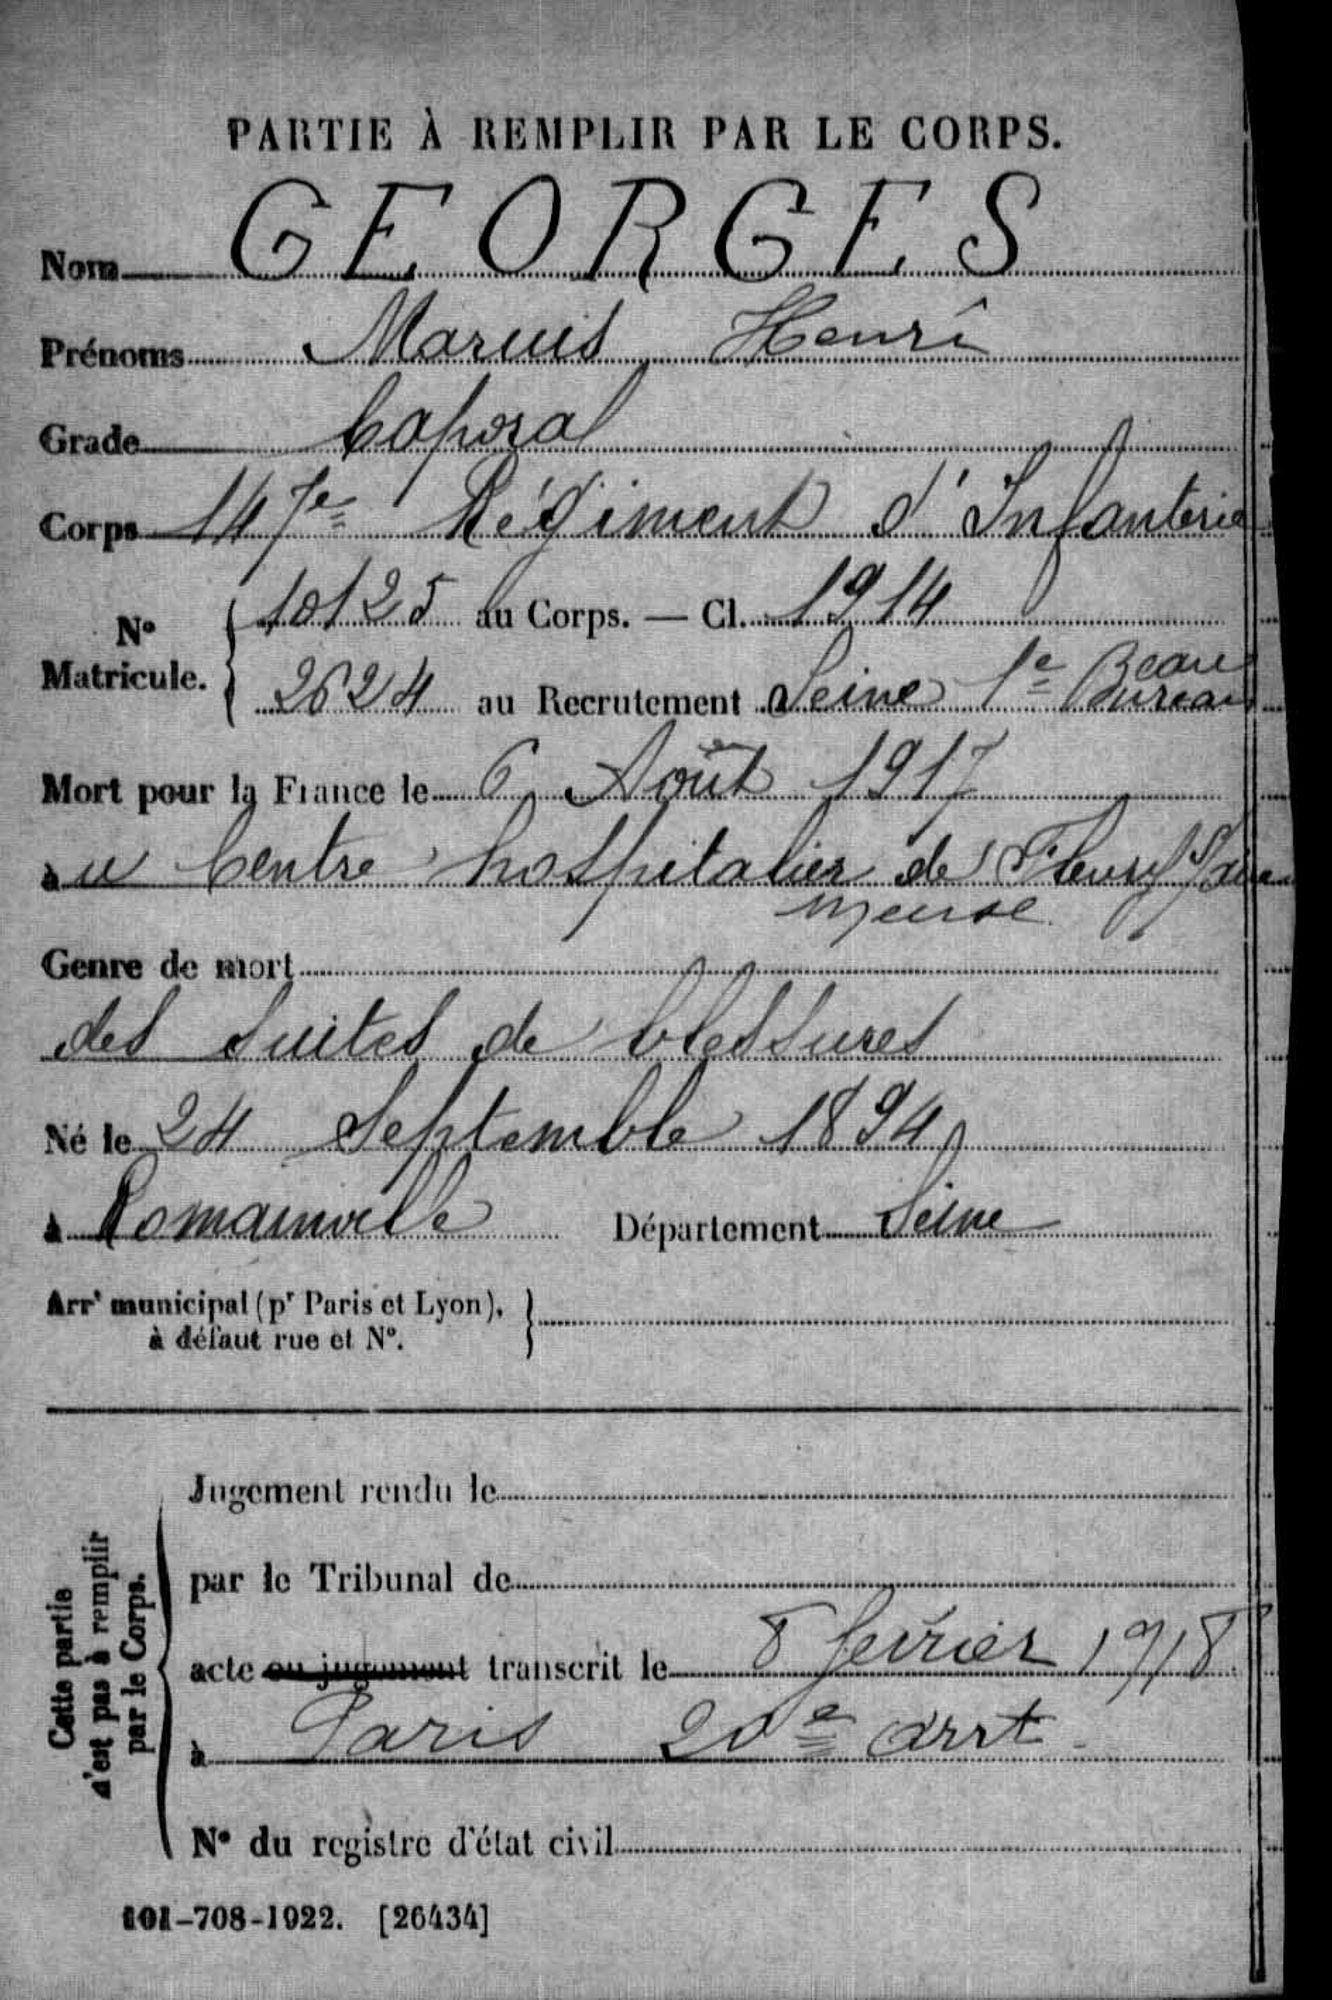 PARTIE À REMPLIR PAR LE CORPS.
Nom GEORGES
Prénoms Marius Henri
Grade Caporal
Corps 147e Régiment d'Infanterie
N° Matricule. { 10125 au Corps. — Cl. 1914
2624 au Recrutement Seine 1e Bureau
Mort pour la France le 6 Août 1917
au Centre hospitalier de Fleury s/Aire
Meuse
Genre de mort
des suites de blessures
Né le 24 Septembre 1894
à Romainville Département Seine
Arrt municipal (pr Paris et Lyon),
à défaut rue et N°.
Cette partie n'est pas à remplir par le Corps.
Jugement rendu le
par le Tribunal de
acte ou jugement transcrit le 8 février 1918
à Paris 20e arrt
N° du registre d'état civil
101-708-1922. [26434]